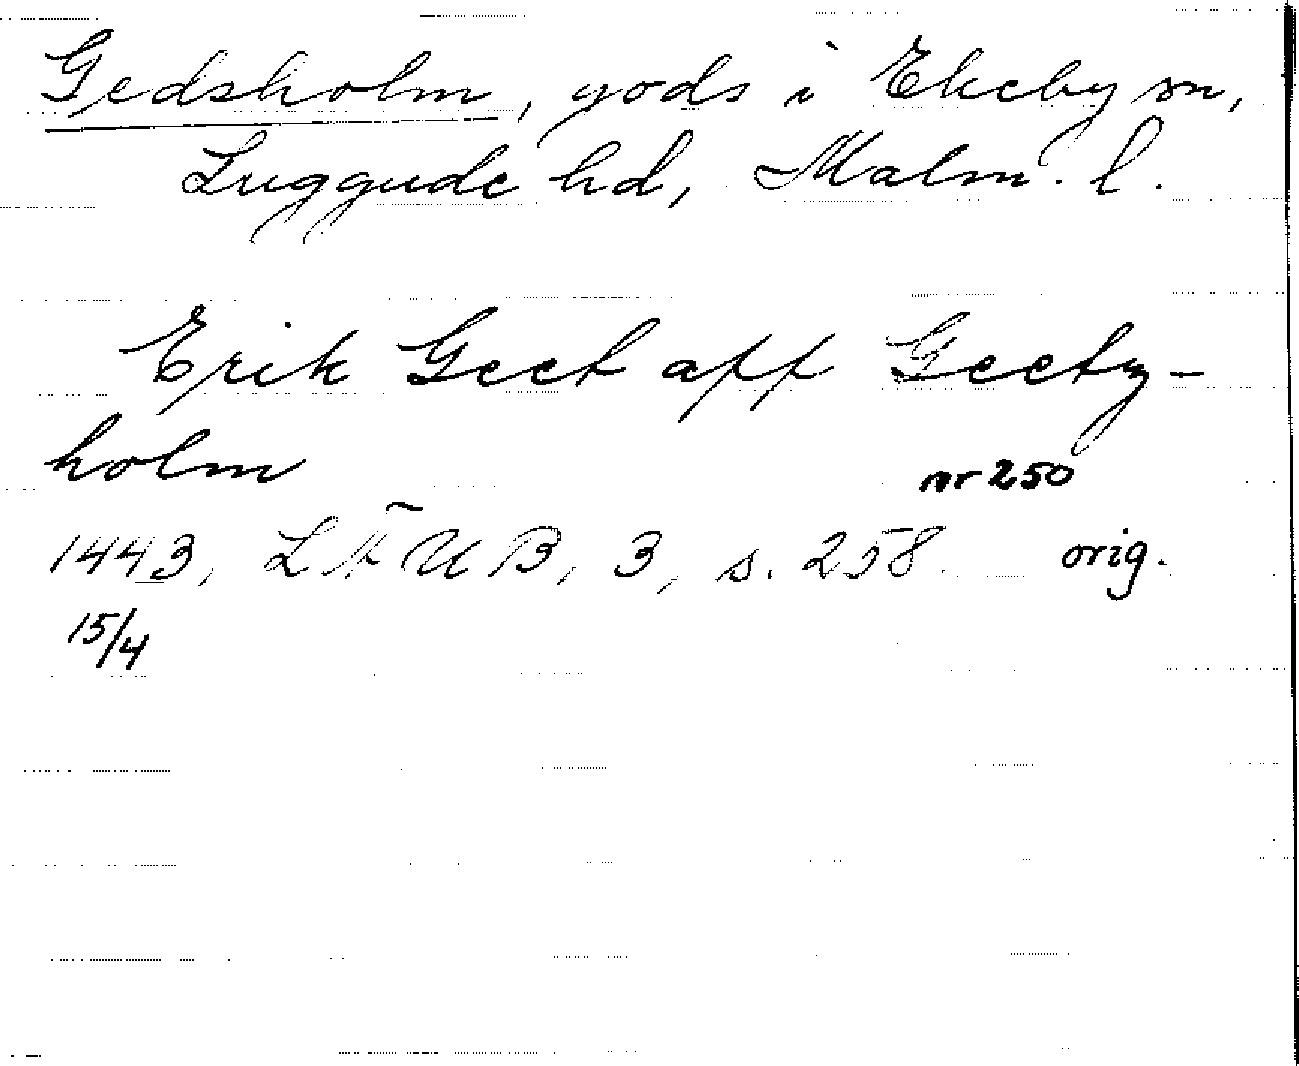 Gedsholm, gods i Ekeby sn,
Luggude hd, Malm. l.
Erik Geet aff Geetz-
holm
nr 250
1443, LÄUB, 3, s. 258. orig.
15/4